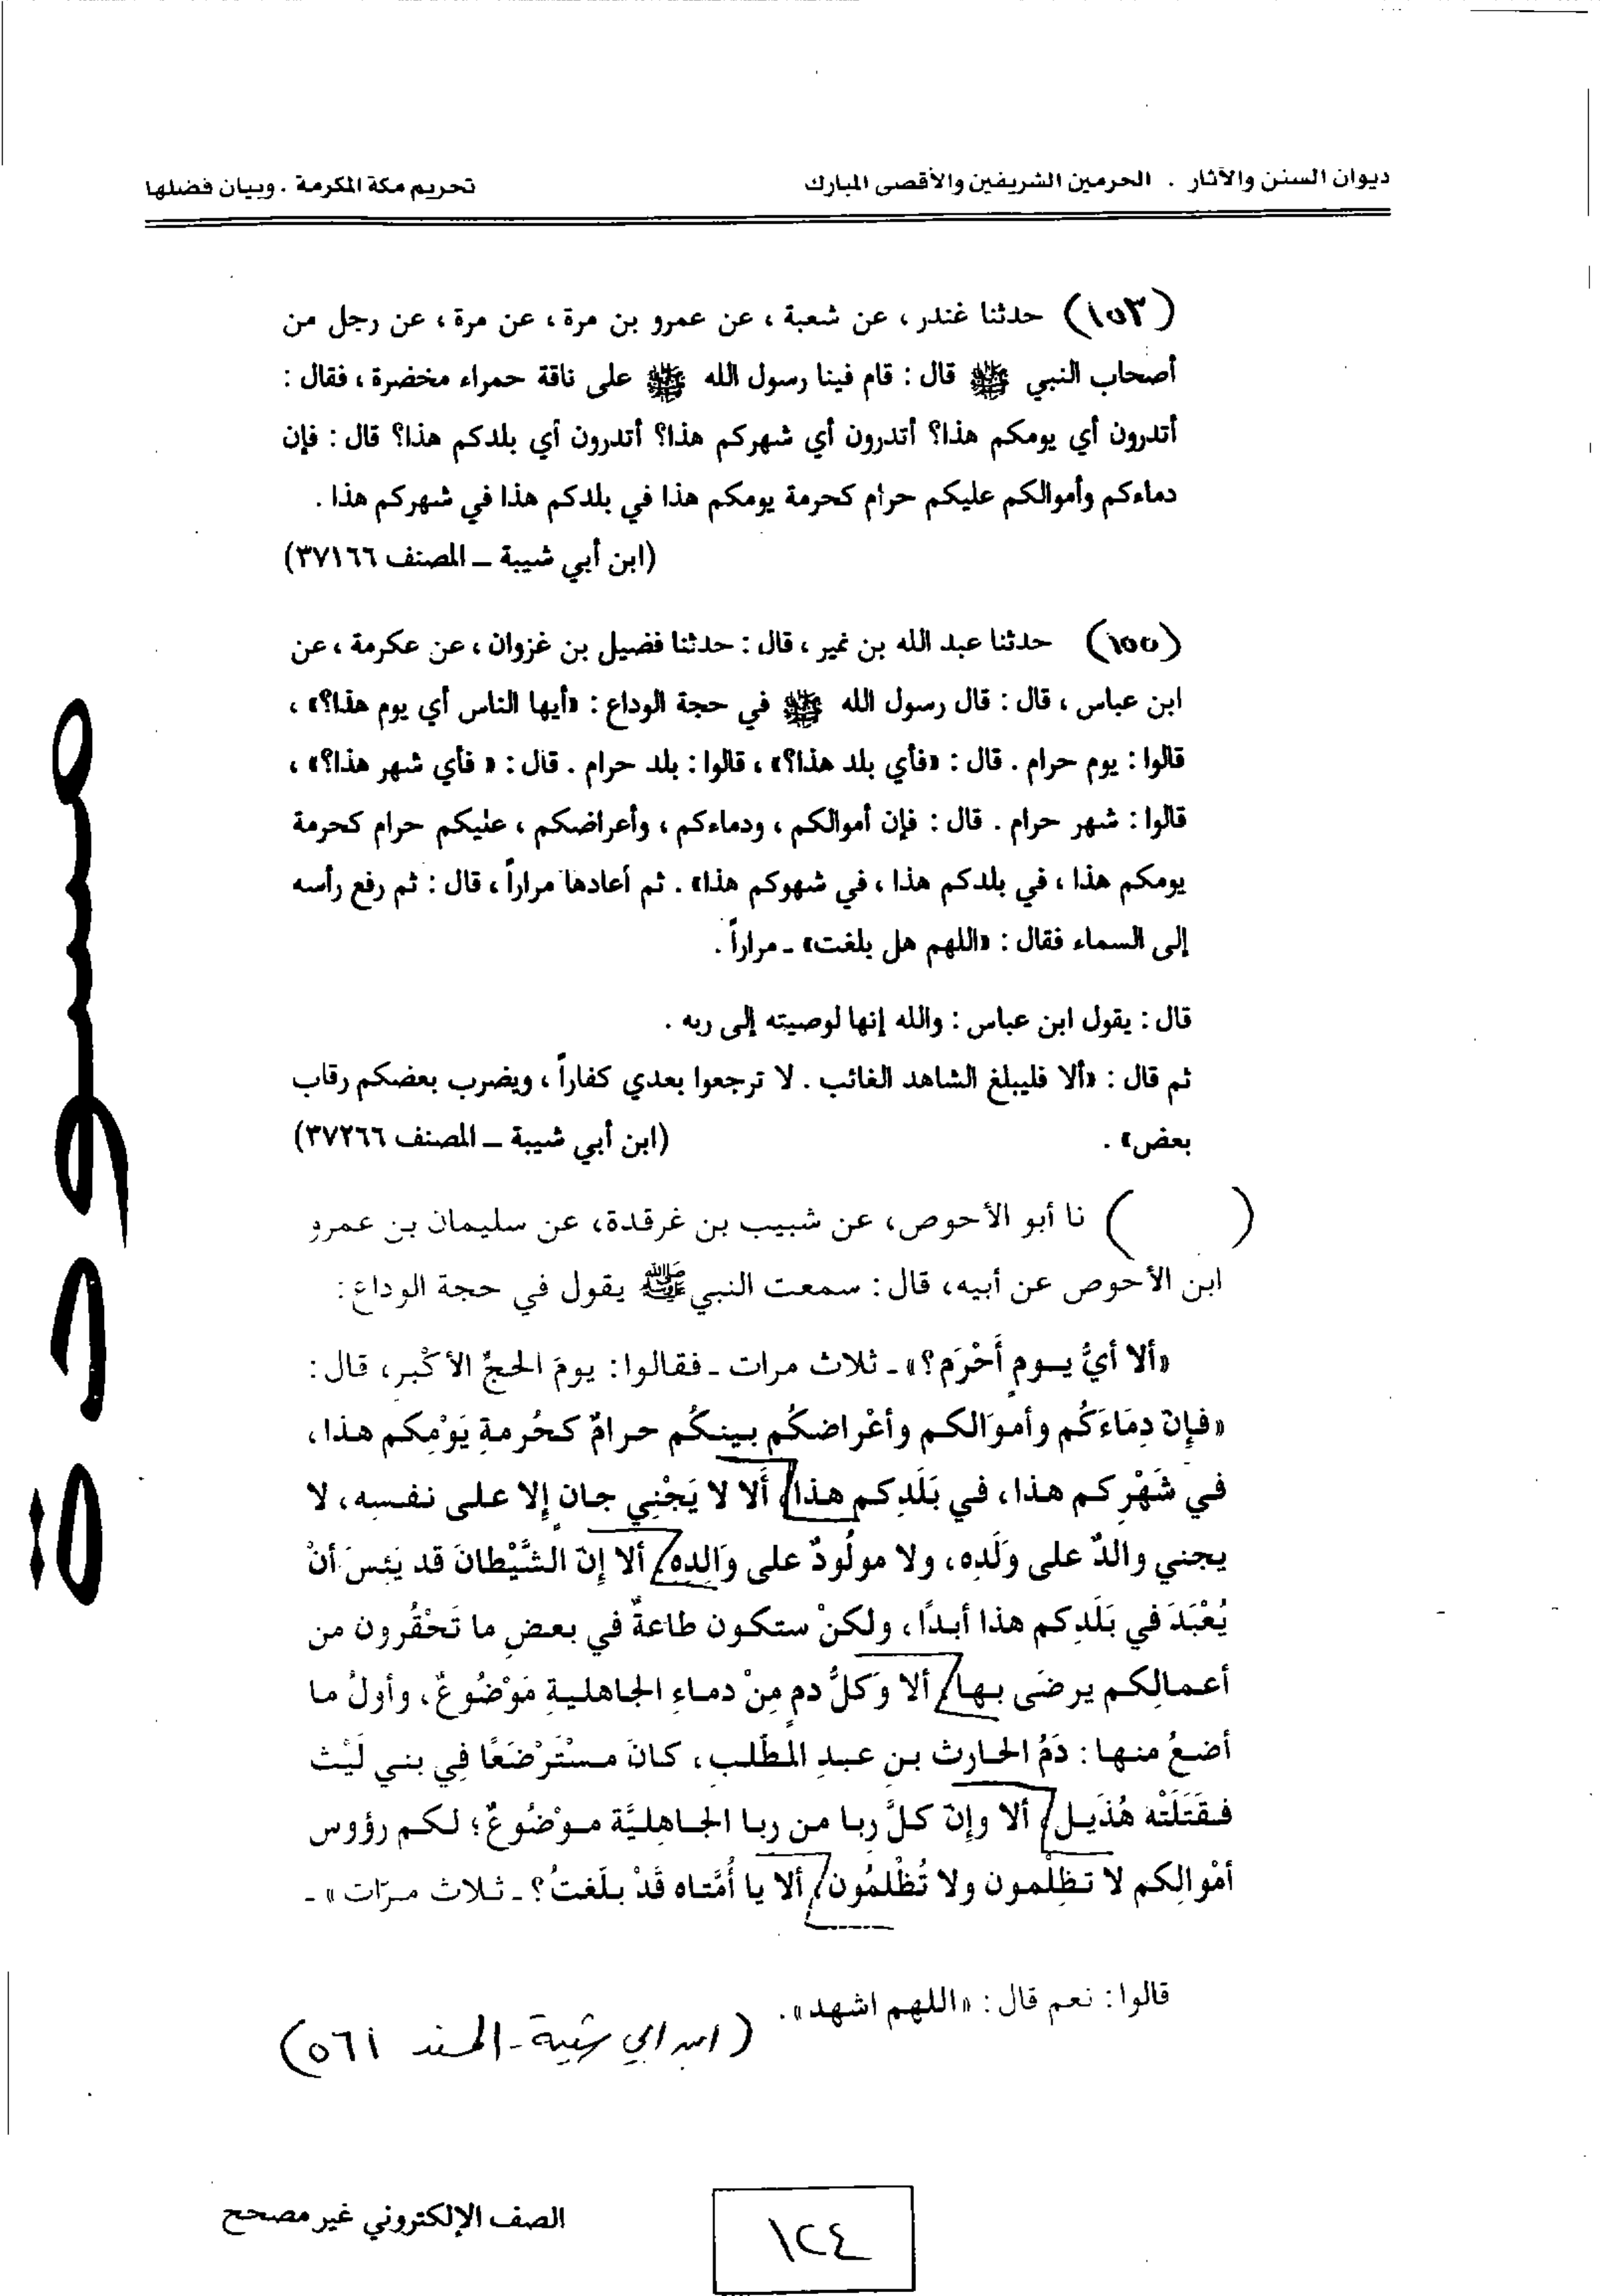 ديوان السنن والآثار . الحرمين الشريفين والأقصى المبارك
تحريم مكة المكرمة . وبيان فضلها
(١٥٣) حدثنا غندر ، عن شعبة ، عن عمرو بن مرة ، عن مرة ، عن رجل من
أصحاب النبي ﷺ قال : قام فينا رسول الله ﷺ على ناقة حمراء مخضرة ، فقال :
أتدرون أي يومكم هذا؟ أتدرون أي شهركم هذا؟ أتدرون أي بلدكم هذا؟ قال : فإن
دماءكم وأموالكم عليكم حرام كحرمة يومكم هذا في بلدكم هذا في شهركم هذا .
(ابن أبي شيبة ـ المصنف ٣٧١٦٦)
(١٥٥) حدثنا عبد الله بن نمير ، قال : حدثنا فضيل بن غزوان ، عن عكرمة ، عن
ابن عباس ، قال : قال رسول الله ﷺ في حجة الوداع : «أيها الناس أي يوم هذا؟» ،
قالوا : يوم حرام . قال : «فأي بلد هذا؟» ، قالوا : بلد حرام . قال : « فأي شهر هذا؟» ،
قالوا : شهر حرام . قال : فإن أموالكم ، ودماءكم ، وأعراضكم ، عليكم حرام كحرمة
يومكم هذا ، في بلدكم هذا ، في شهوكم هذا» . ثم أعادها مراراً ، قال : ثم رفع رأسه
إلى السماء فقال : «اللهم هل بلغت» ـ مراراً .
قال : يقول ابن عباس : والله إنها لوصيته إلى ربه .
ثم قال : «ألا فليبلغ الشاهد الغائب . لا ترجعوا بعدي كفاراً ، ويضرب بعضكم رقاب
بعض» . (ابن أبي شيبة ـ المصنف ٣٧٢٦٦)
( ) نا أبو الأحوص، عن شبيب بن غرقدة، عن سليمان بن عمرو
ابن الأحوص عن أبيه، قال: سمعت النبي ﷺ يقول في حجة الوداع:
«ألا أيُّ يـومٍ أَحْرَم؟» ـ ثلاث مرات ـ فقالوا: يومَ الحجِّ الأكْبر، قال:
«فإِنّ دِمَاءَكُم وأموَالكم وأعْراضكُم بينكُم حرامٌ كحُرمةِ يَوْمِكم هذا،
في شَهْرِكم هذا، في بَلَدِكم هذا/ أَلا لا يَجْنِي جانٍ إِلا على نفسِه، لا
يجني والدٌ على وَلَدِه، ولا مولُودٌ على وَالِدِه/ ألا إِنّ الشَّيْطانَ قد يَئِسَ أنْ
يُعْبَدَ في بَلَدِكم هذا أبدًا، ولكنْ ستكون طاعةٌ في بعضِ ما تَحْقُرون من
أعمالِكم يرضَى بها/ ألا وَكلُّ دمٍ مِنْ دماءِ الجاهليةِ مَوْضُوعٌ، وأولُ ما
أضعُ منها: دَمُ الحارثِ بنِ عبدِ المُطّلب، كانَ مسْتَرْضَعًا فِي بني لَيْث
فقَتَلَتْه هُذَيل/ ألا وإِنّ كلَّ ربا من ربا الجاهليَّة موْضُوعٌ؛ لكم رؤوس
أمْوالِكم لا تظلِمون ولا تُظْلمُون/ ألا يا أُمَّتاه قَدْ بلّغتُ؟ ـ ثلاث مرّات» ـ
قالوا: نعم قال: «اللهم اشهد».
(ابن أبي شيبة ـ المسند ٥٦١)
مسودة
الصف الإلكتروني غير مصحح
١٢٤